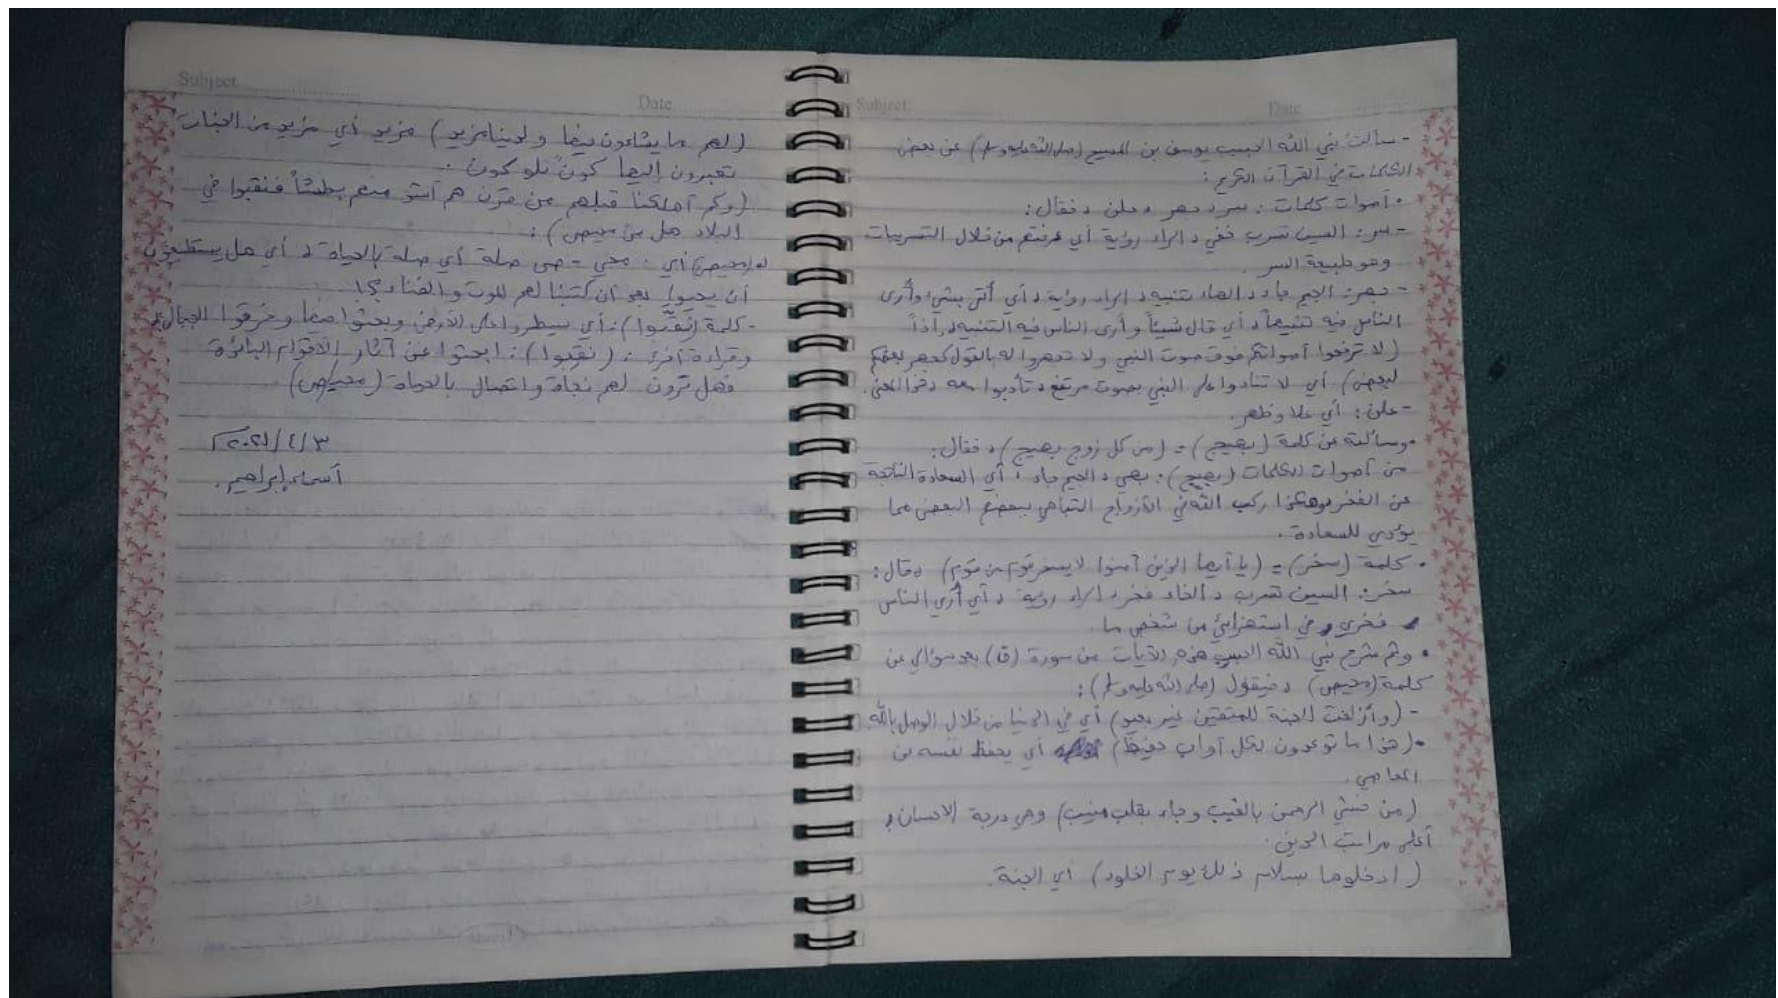 Subject
Date
- سألت نبي الله الحبيب يوسف بن المسيح (صلى الله عليه وسلم) عن بعض
الكلمات في القرآن الكريم :
• أصوات كلمات : سر ، جهر ، علن ، فقال :
- سر : السين تسرب خفي ، الراء رؤية أي عرفتم من خلال التسريبات
وهو طبيعة السر .
- جهر : الجيم جاء ، الهاء تنبيه ، الراء رؤية ، أي أتى بشيء وأرى
الناس فيه تنبيهاً ، أي قال شيئاً وأرى الناس فيه التنبيه ، إذاً
(لا ترفعوا أصواتكم فوق صوت النبي ولا تجهروا له بالقول كجهر بعضكم
لبعض) أي لا تنادوا على النبي بصوت مرتفع ، تأدبوا معه ، هذا المعنى .
- علن : أي علا وظهر .
• وسألته عن كلمة (بهيج) = (من كل زوج بهيج) ، فقال :
من أصوات الكلمات (بهيج) : بهي ، الجيم جاء ، أي السعادة الناتجة
عن الفخر وهكذا ركب الله في الأزواج التباهي ببعضهم البعض مما
يؤدي للسعادة .
• كلمة (سخر) = (يا أيها الذين آمنوا لا يسخر قوم من قوم) ، قال :
سخر : السين تسرب ، الخاء فخر ، الراء رؤية ، أي أُري الناس
فخري في استهزائي من شخص ما .
• وثم شرح نبي الله الحبيب هذه الآيات من سورة (ق) بعد سؤالي عن
كلمة (محيص) ، فيقول (صلى الله عليه وسلم) :
- (وأزلفت الجنة للمتقين غير بعيد) أي في الدنيا من خلال الوصل بالله .
• (هذا ما توعدون لكل أواب حفيظ) أي يحفظ نفسه من
المعاصي .
(من خشي الرحمن بالغيب وجاء بقلب منيب) وهي درجة الاحسان ،
أعلى مراتب الدين .
(ادخلوها بسلام ذلك يوم الخلود) أي الجنة .
Subject
Date
(لهم ما يشاءون فيها ولدينا مزيد) مزيد أي مزيد من الجنات
تعبرون إليها كونٌ تلو كون .
(وكم أهلكنا قبلهم من قرن هم أشد منهم بطشاً فنقبوا في
البلاد هل من محيص) :
(محيص) أي : محي - صى صلة أي صلة بالحياة ، أي هل يستطيعون
أن يحيوا بعد أن كتبنا لهم الموت والفناء ؟!
- كلمة (نَقَّبوا) : أي سيطروا على الأرض وبحثوا فيها وخرقوا الجبال ،
وقراءة أخرى : (نقِّبوا) : ابحثوا عن آثار الأقوام البائدة
فهل ترون لهم نجاة واتصال بالحياة (محيص)
٢٠٢١/٤/٣
أسماء إبراهيم .